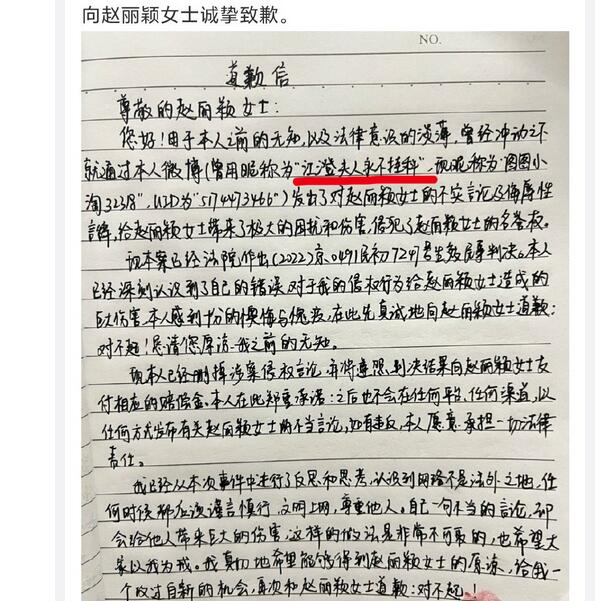 向赵丽颖女士诚挚致歉。
NO.
道歉信
尊敬的赵丽颖女士：
您好！由于本人之前的无知，以及法律意识的淡薄，曾经冲动之下
就通过本人微博（曾用昵称为"江澄夫人永不挂科"，现昵称为"图图小
淘32318"，UID为"5174473466"）发出了对赵丽颖女士的不实言论及侮辱性
言辞，给赵丽颖女士带来了极大的困扰和伤害，侵犯了赵丽颖女士的名誉权。
现本案已经法院作出（2022）京0491民初7247号生效民事判决。本人
已经深刻认识到了自己的错误，对于我的侵权行为给赵丽颖女士造成的
巨大伤害本人感到十分的懊悔与愧疚，在此先真诚地向赵丽颖女士道歉：
对不起！恳请您原谅我之前的无知。
现本人已经删掉涉案侵权言论，并将遵照判决结果向赵丽颖女士支
付相应的赔偿金。本人在此郑重承诺：之后也不会在任何平台，任何渠道，以
任何方式发布有关赵丽颖女士的不当言论，如有违反，本人愿意承担一切法律
责任。
我已经从本次事件中进行了反思和思考，认识到网络不是法外之地，任
何时候都应该谨言慎行，文明上网，尊重他人。自己一句不当的言论，却
会给他人带来巨大的伤害，这样的做法是非常不可取的，也希望大
家以我为戒。我真切地希望能够得到赵丽颖女士的原谅，给我一
个改过自新的机会，再次和赵丽颖女士道歉：对不起！